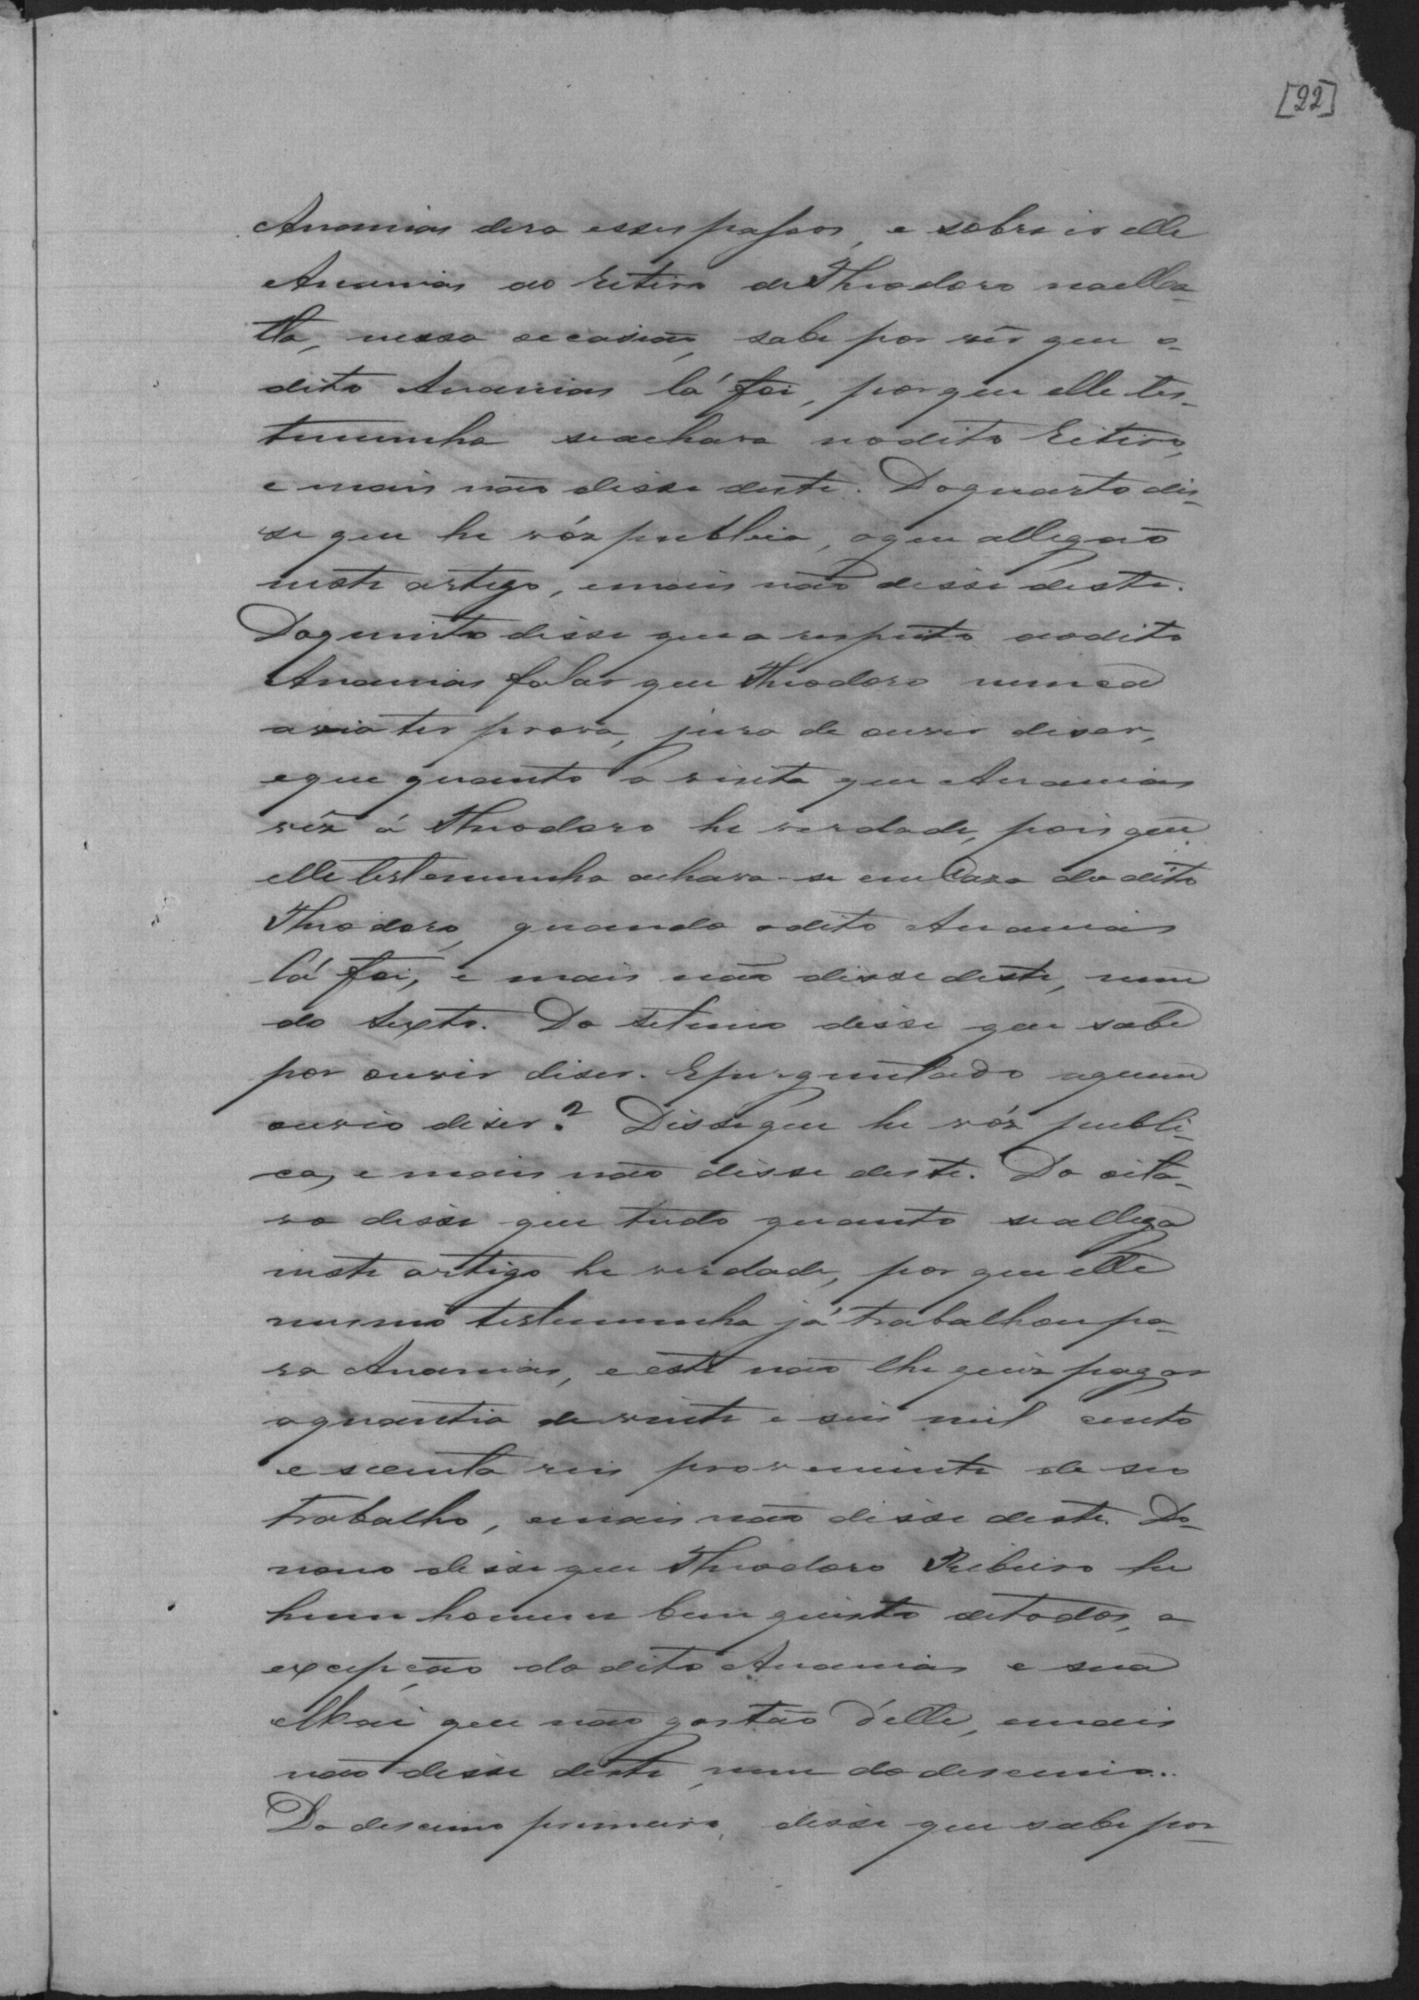 [22]
Ananias dera esses passos, e sobre ir elle
Ananias ao Retiro de Theodoro naella-
tta, nessa occasião, sabe por vêr que o
dito Ananias lá foi, porque elle tes-
temunha seachava nodito Retiro,
e mais não disse deste. Doquarto dis-
se que he vóz publica, oque allegão
neste artigo, emais não disse deste.
Doquinto disse que a respeito aodito
Ananias falar que Theodoro nunca
avia ter prova, jura de ouvir diser,
eque quanto a visita que Ananias
fêz á Theodoro he verdade, pois que
elle testemunha achava-se em Caza do dito
Theodoro, quando odito Ananias
lá foi, e mais não disse deste, nem
do sexto. Do setimo disse que sabe
por ouvir diser. Eperguntado aquem
ouvio diser? Disseque he vóz publi-
ca, e mais não disse deste. Do oita-
vo disse que tudo quanto seallega
neste artigo he verdade, por que elle
mesmo testemunha já trabalhou pa-
ra Ananias, e este não lhe quiz pagar
aquantia de vinte e seis mil cento
e secenta reis proveniente de seo
trabalho, emais não disse deste. Do
nono disse que Theodoro Ribeiro he
hum homem bem quisto detodos, a
excepção do dito Ananias e sua
Mai que não gostão d'elle, emais
não disse deste, nem do descimo.
Do descimo primeiro, disse que sabe por